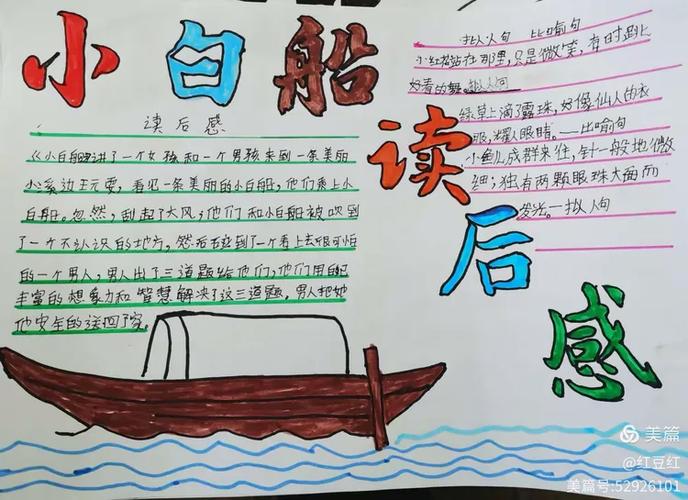 小白船
读后感
读后感
《小白船》讲了一个女孩和一个男孩来到一条美丽
小溪边玩耍,看见一条美丽的小白船,他们乘上小
白船。忽然,刮起了大风,他们和小白船被吹到
了一个不认识的地方,然后碰到了一个看上去很可怕
的一个男人,男人出了三道题给他们,他们用自己
丰富的想象力和智慧解决了这三道题,男人把她
他安全的送回了家。
拟人句 比喻句
小红花站在那里,只是微笑,有时跳上
好看的舞。拟人句
绿草上滴了露珠,好像仙人的衣
服,耀人眼睛。—比喻句
小鱼儿成群来往,针一般地微
细;独有两颗眼珠大而
发光。—拟人句
美篇
@红豆红
美篇号:52926101